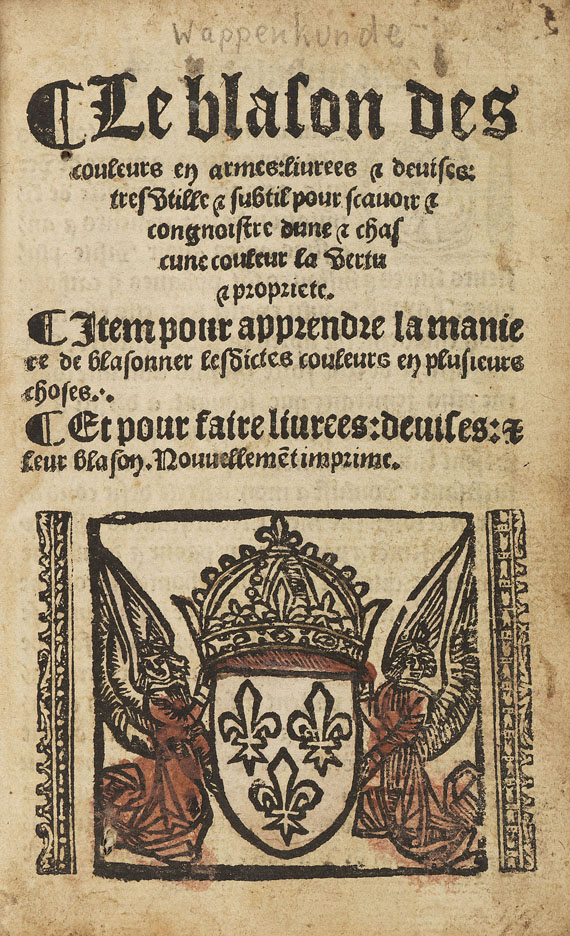 Wappenkunde
¶ Le blason des
couleurs en armes: livrees ⁊ devises:
tresvtille ⁊ subtil pour scavoir ⁊
congnoistre dune ⁊ chas
cune couleur la vertu
⁊ propriete.
¶ Item pour apprendre la manie
re de blasonner lesdictes couleurs en plusieurs
choses.·.
¶ Et pour faire liurees: deuises: ⁊
leur blason. Nouuellemēt imprime.